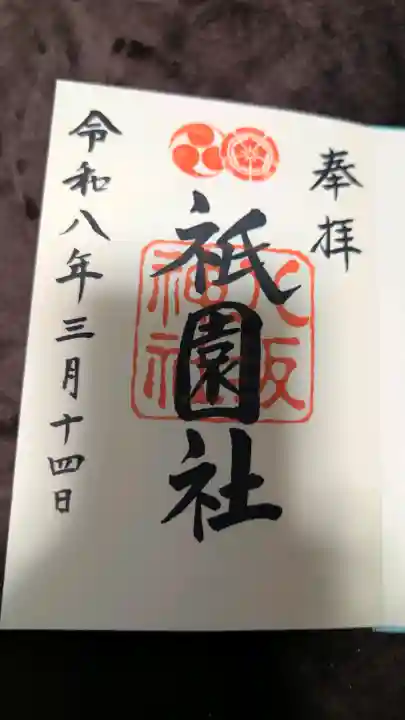 奉拝
祇園社
八坂神社
令和八年三月十四日